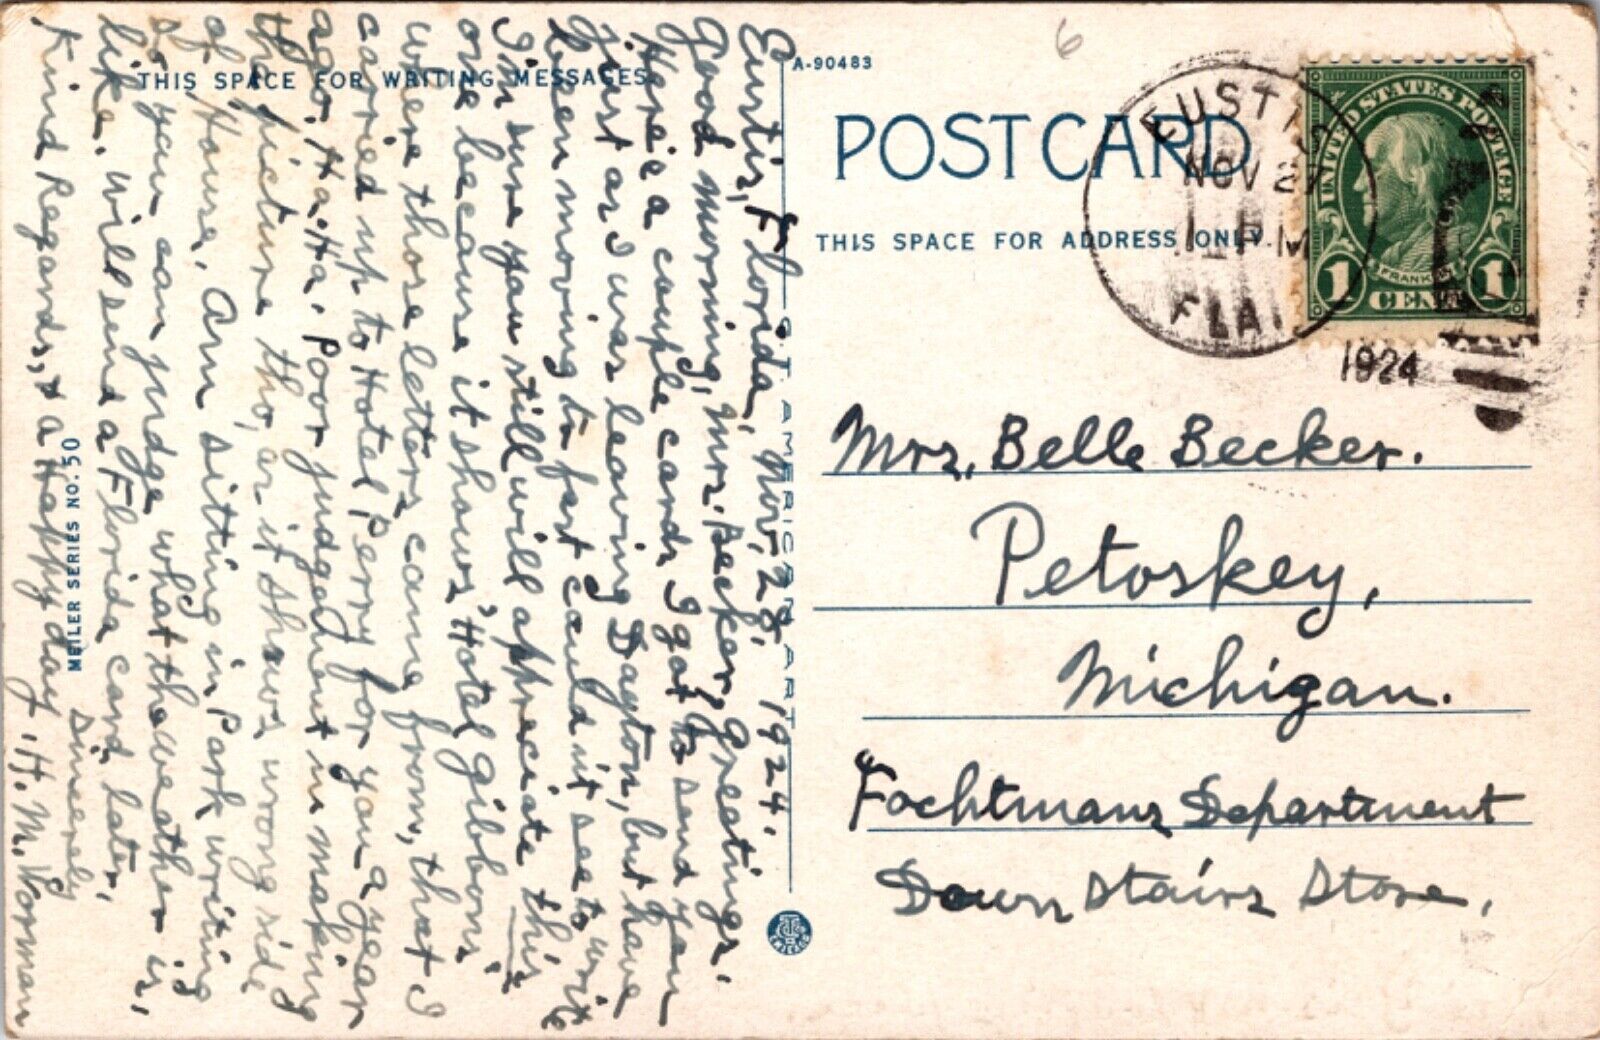 THIS SPACE FOR WRITING MESSAGES
Eustis, Florida, Nov, 28, 1924.
Good morning, Mrs. Becker, Greetings.
Here is a couple cards I got to send you
just as I was leaving Dayton, but have
been moving to fast could n't see to write
I'm sure you still will appreciate this
one because it shows, Hotel Gibbons
where those letters came from, that I
carried up to Hotel Perry for you a year
ago. Ha. Ha. Poor judgement in making
the picture tho, as it shows wrong side
of House. Am sitting in Park writing
so you can judge what the weather is,
like. Will send a Florida card later,
Sinserely
Kind Regards, & a Happy day, H. M. Worman
MEILER SERIES NO. 50
A-90483
6
POST CARD
THIS SPACE FOR ADDRESS ONLY.
C. T. AMERICAN ART
CHICAGO
EUSTIS
NOV 27
1 PM
FLA
1924
UNITED STATES POSTAGE
FRANKLIN
1 CENT 1
Mrs, Belle Becker.
Petoskey,
Michigan.
Fochtmans Department
Down Stairs Store,